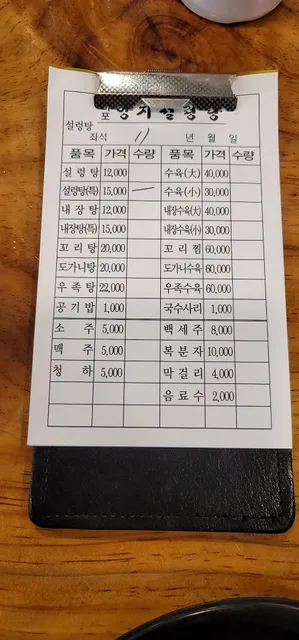 포양지설렁탕
설렁탕
좌석 11 년 월 일
품목 가격 수량 품목 가격 수량
설렁탕 12,000 수육(大) 40,000
설렁탕(특) 15,000 수육(小) 30,000
내장탕 12,000 내장수육(大) 40,000
내장탕(특) 15,000 내장수육(小) 30,000
꼬리탕 20,000 꼬리찜 60,000
도가니탕 20,000 도가니수육 60,000
우족탕 22,000 우족수육 60,000
공기밥 1,000 국수사리 1,000
소주 5,000 백세주 8,000
맥주 5,000 복분자 10,000
청하 5,000 막걸리 4,000
음료수 2,000